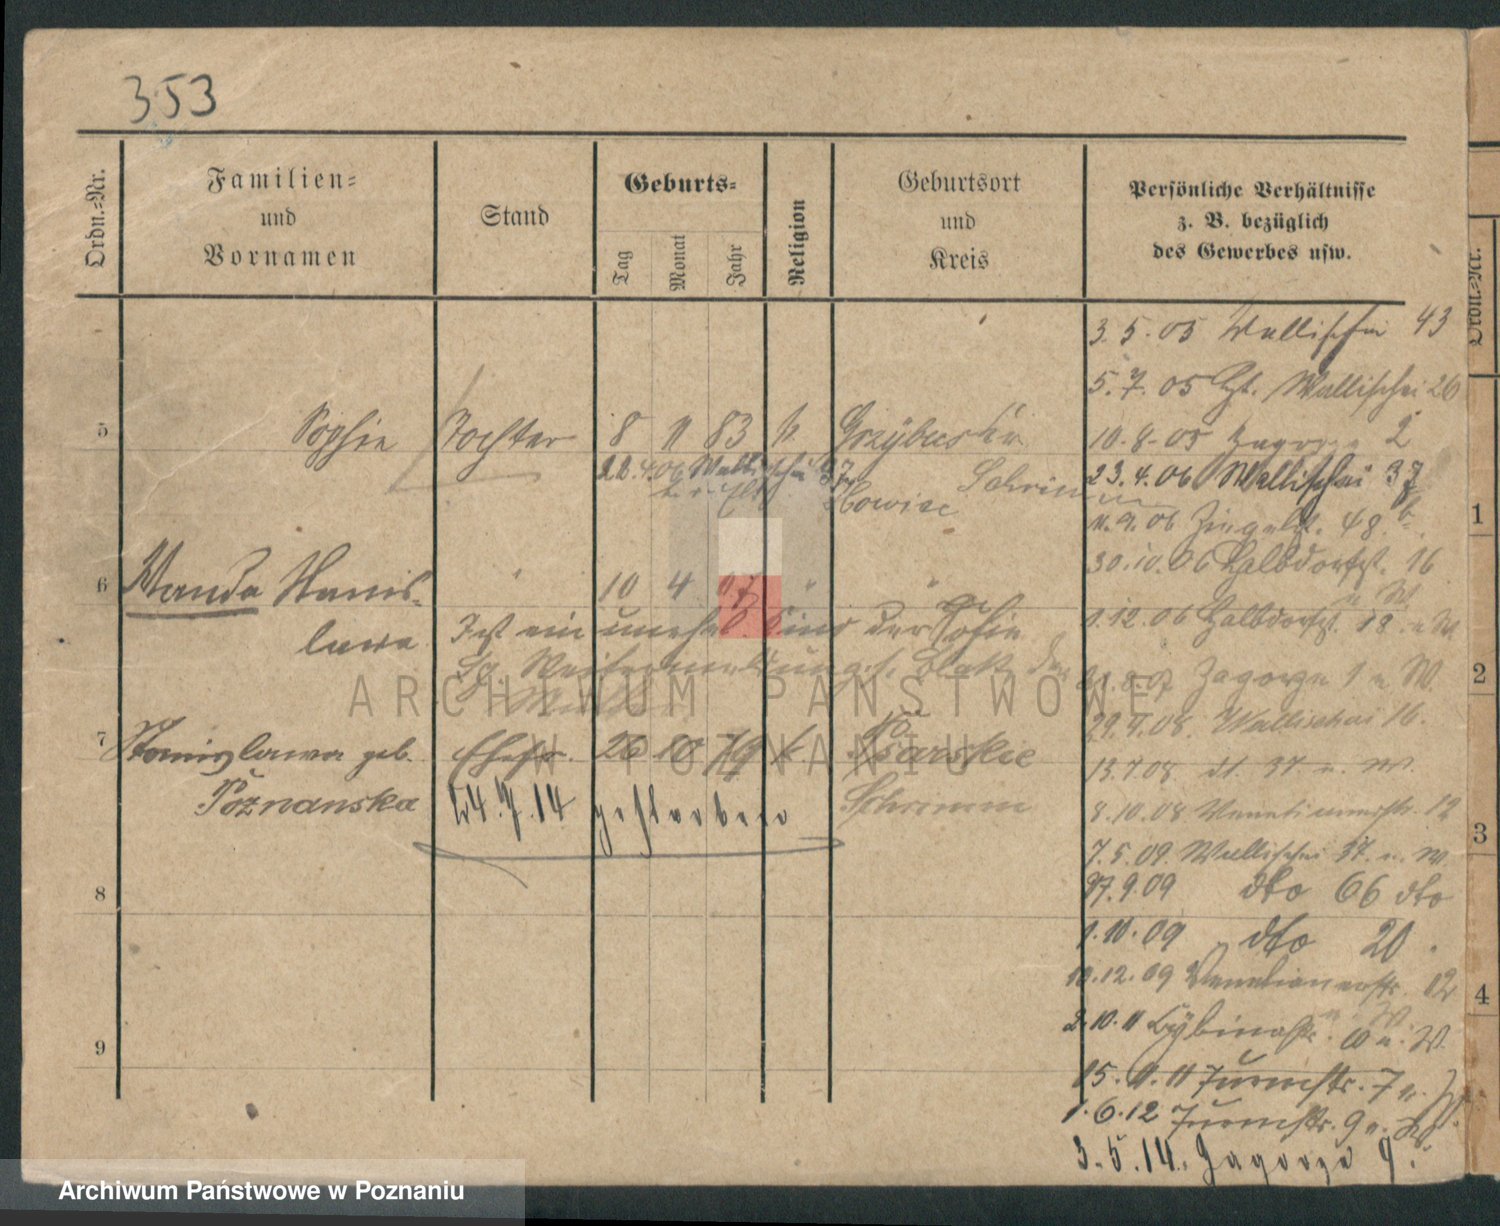 353
Ordn.-Nr.
Familien-
und
Vornamen
Stand
Geburts-
Tag
Monat
Jahr
Religion
Geburtsort
und
Kreis
Persönliche Verhältnisse
z. B. bezüglich
des Gewerbes usw.
3. 5. 05 Wallischei 43
5. 7. 05 Wallischei 26
5 Sophie Tochter 8 11 83 k.
10. 8. 05 Zagorze 2
22. 4. 06 Wallischei 37
Schrim
23. 4. 06 Wallischei 37
11. 9. 06 48
30. 10. 06 Halbdorfst. 16
6 Wanda Stanis-
lawa
" 10 4 07 " "
Ist ein unehel. Kind der Sofie
1. 12. 06 Halbdorfst. 18
Zagorze 1 u W.
29. 9. 08. Wallischei 16.
7 Stanislawa geb.
Poznanska
Ehefr. 26 10 79 k. Psarskie
Schrimm
24. 7. 14 gestorben
13. 7 08. dt. 37. u. W.
8. 10. 08 Venetianerstr. 12
7. 5. 09. Wallischei 37. u. W.
27. 9. 09 dto 66 dto
8
1. 10. 09 dto 20.
10. 12. 09 Venetianerstr. 12
2. 10. 11 Cybinastr. u. W.
9
15. 11. 11 Turmstr. 7
1. 6. 12 Turmstr. 9
3. 5. 14. Zagorze 9.
Ordn.-Nr.
1
2
3
4
ARCHIWUM PAŃSTWOWE
W POZNANIU
Archiwum Państwowe w Poznaniu